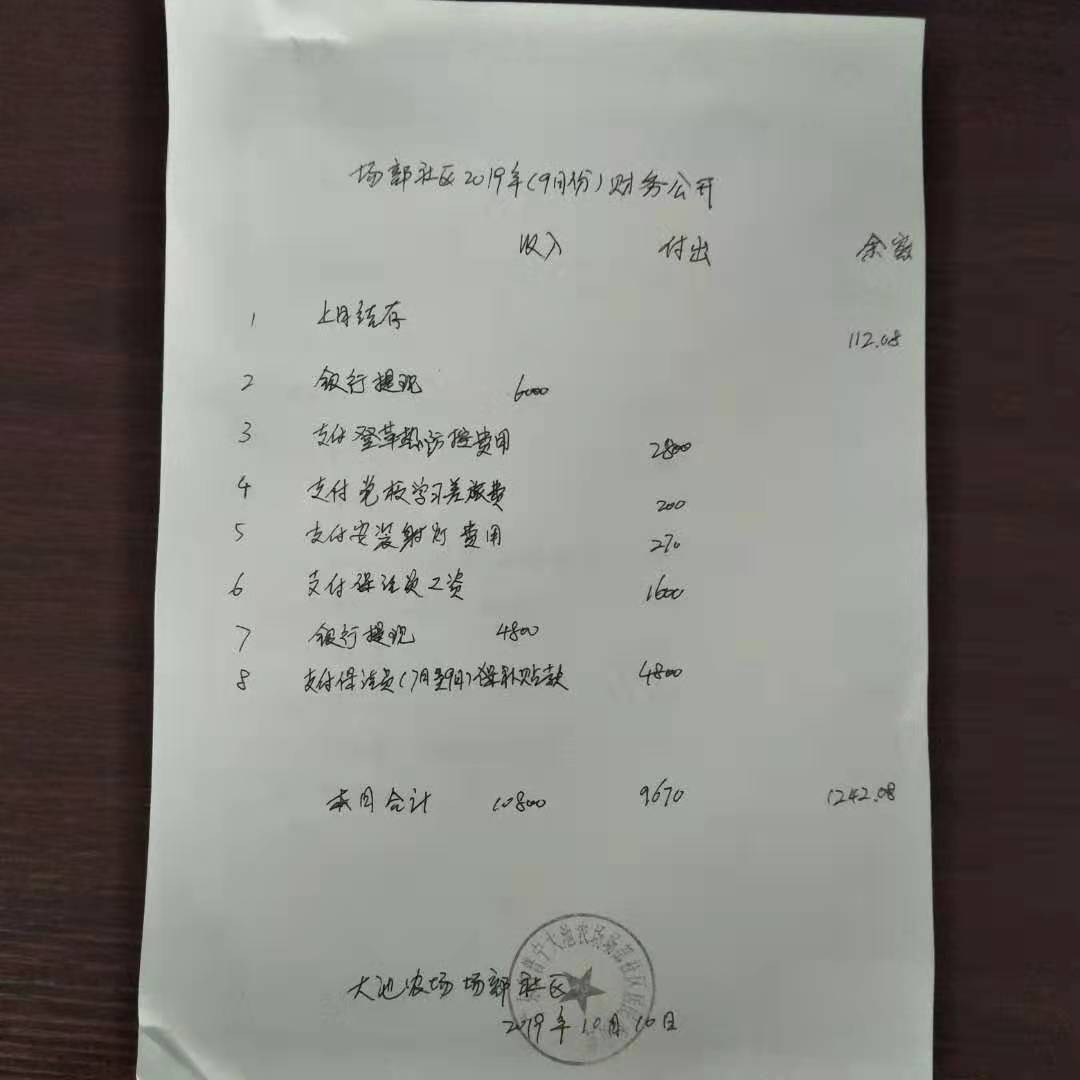 场部社区2019年(9月份)财务公开
收入 付出 余额
1 上月结存 112.08
2 银行提现 6000
3 支付登革热防控费用 2800
4 支付党校学习差旅费 200
5 支付安装射灯费用 270
6 支付保洁员工资 1600
7 银行提现 4800
8 支付保洁员(7月至9月)保补贴款 4800
本月合计 10800 9670 1242.08
普宁大池农场场部社区居
大池农场场部社区
2019年10月10日